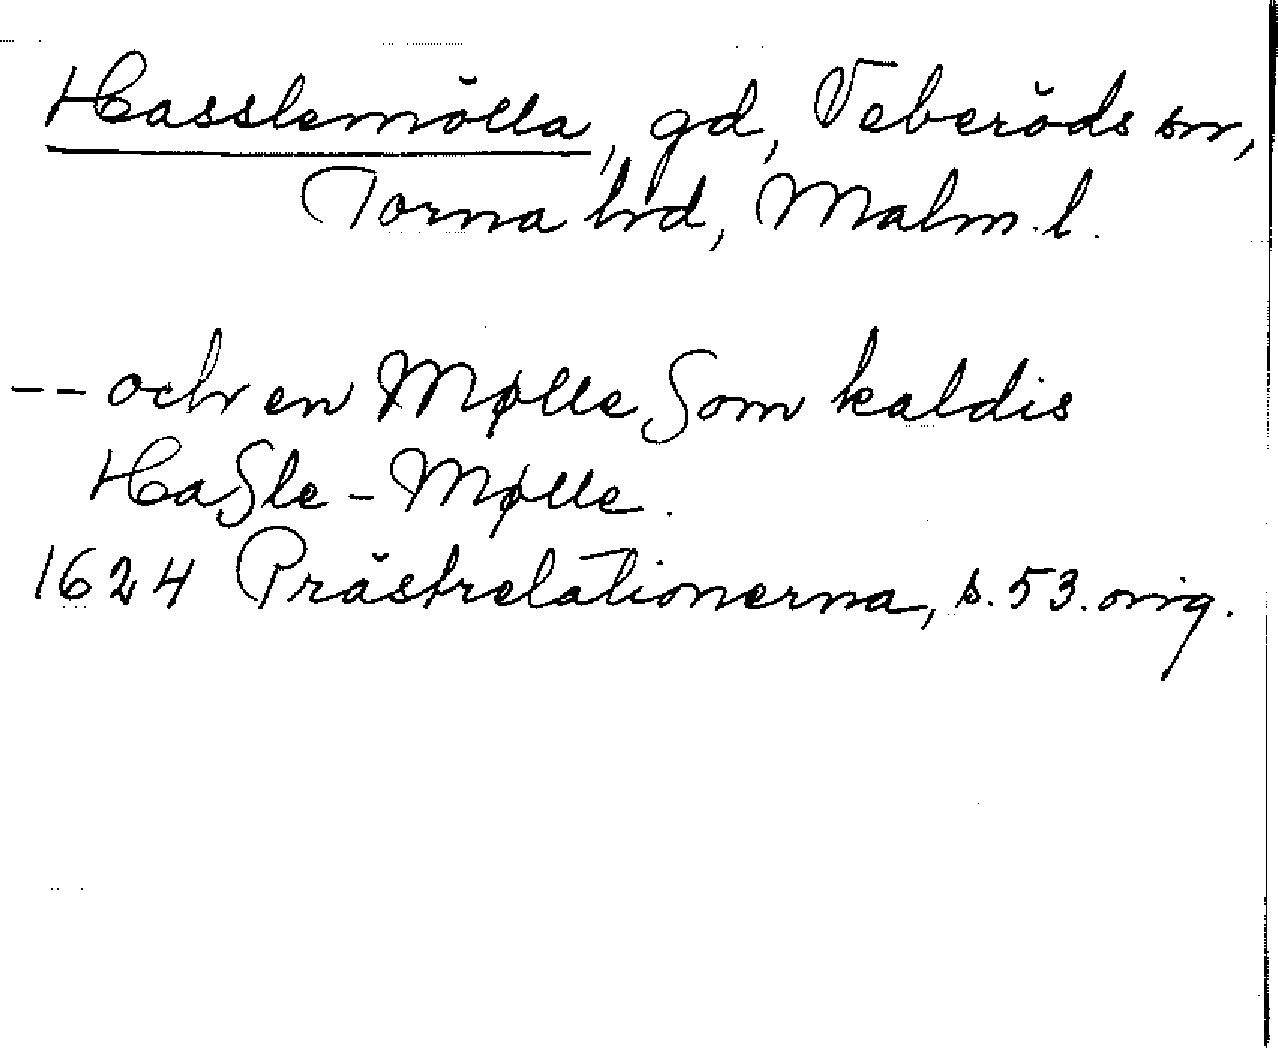 Hasslemölla, gd, Veberöds sn,
Torna hd, Malm. l.
-- och en Mølle Som kaldis
HaSle - Mølle.
1624 Prästrelationerna, s. 53. orig.